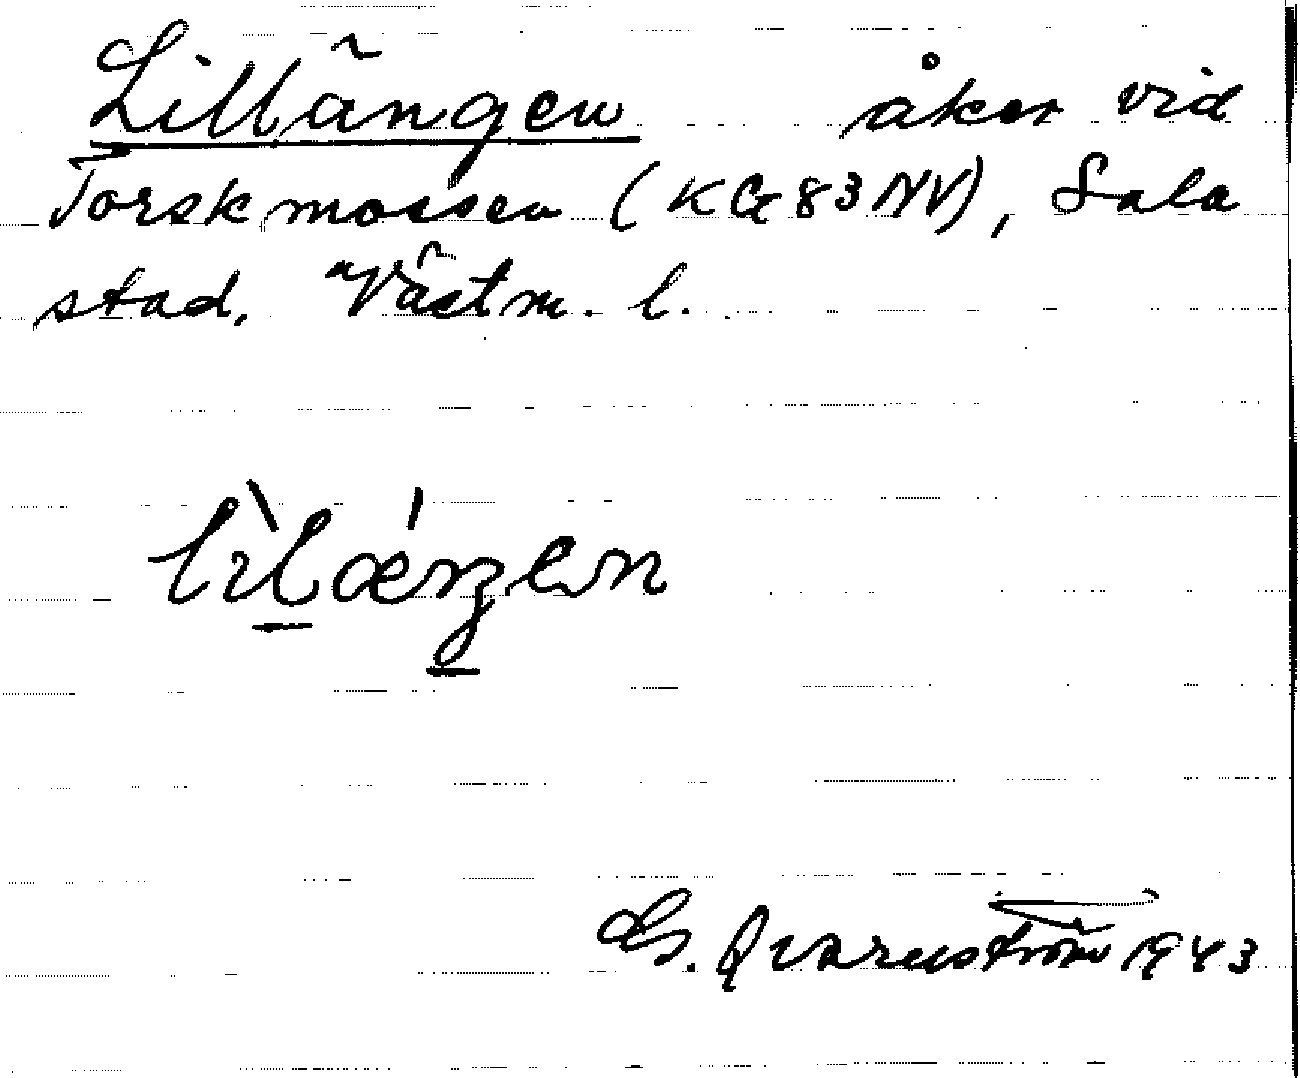 Lillängen åker vid
Torskmossen (KG83NV), Sala
stad, Västm. l.
lìlǽŋen
G. Qvarnström 1943